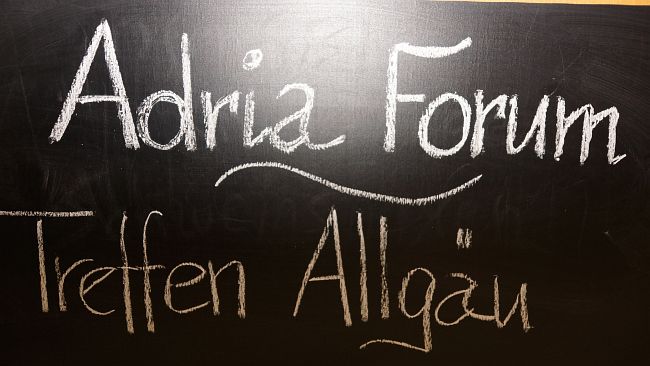 Adria Forum
Treffen Allgäu